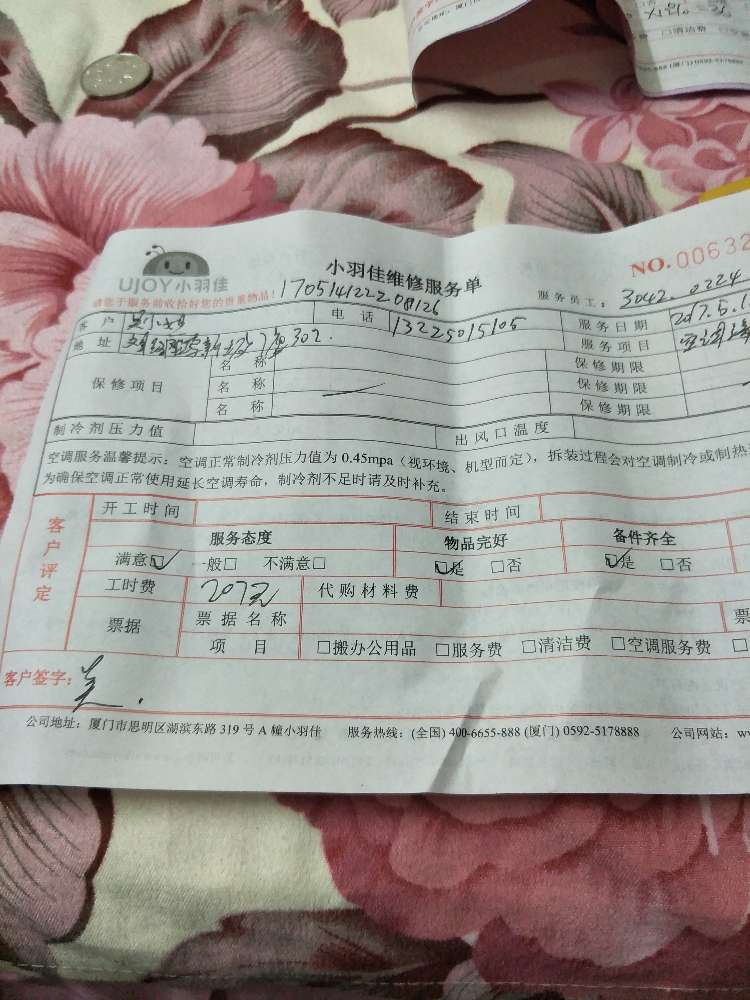 UJOY小羽佳
小羽佳维修服务单
NO.00632
请您于服务前收拾好您的贵重物品!
170514122208126
服务员工: 3042. 0224
客户 电话 13225015105 服务日期 2017.5.1
地址 302. 服务项目 空调
保修项目 名称 保修期限
名称 保修期限
名称 保修期限
制冷剂压力值 出风口温度
空调服务温馨提示: 空调正常制冷剂压力值为 0.45mpa（视环境、机型而定），拆装过程会对空调制冷或制热
为确保空调正常使用延长空调寿命，制冷剂不足时请及时补充。
客户评定
开工时间 结束时间
服务态度 物品完好 备件齐全
满意☑ 一般□ 不满意□ ☑是 □否 ☑是 □否
工时费 207元 代购材料费
票据 票据名称 票
项目 □搬办公用品 □服务费 □清洁费 □空调服务费 □
客户签字: 吴.
公司地址: 厦门市思明区湖滨东路 319 号 A 幢小羽佳 服务热线: (全国) 400-6655-888 (厦门) 0592-5178888 公司网站:
□清洁费